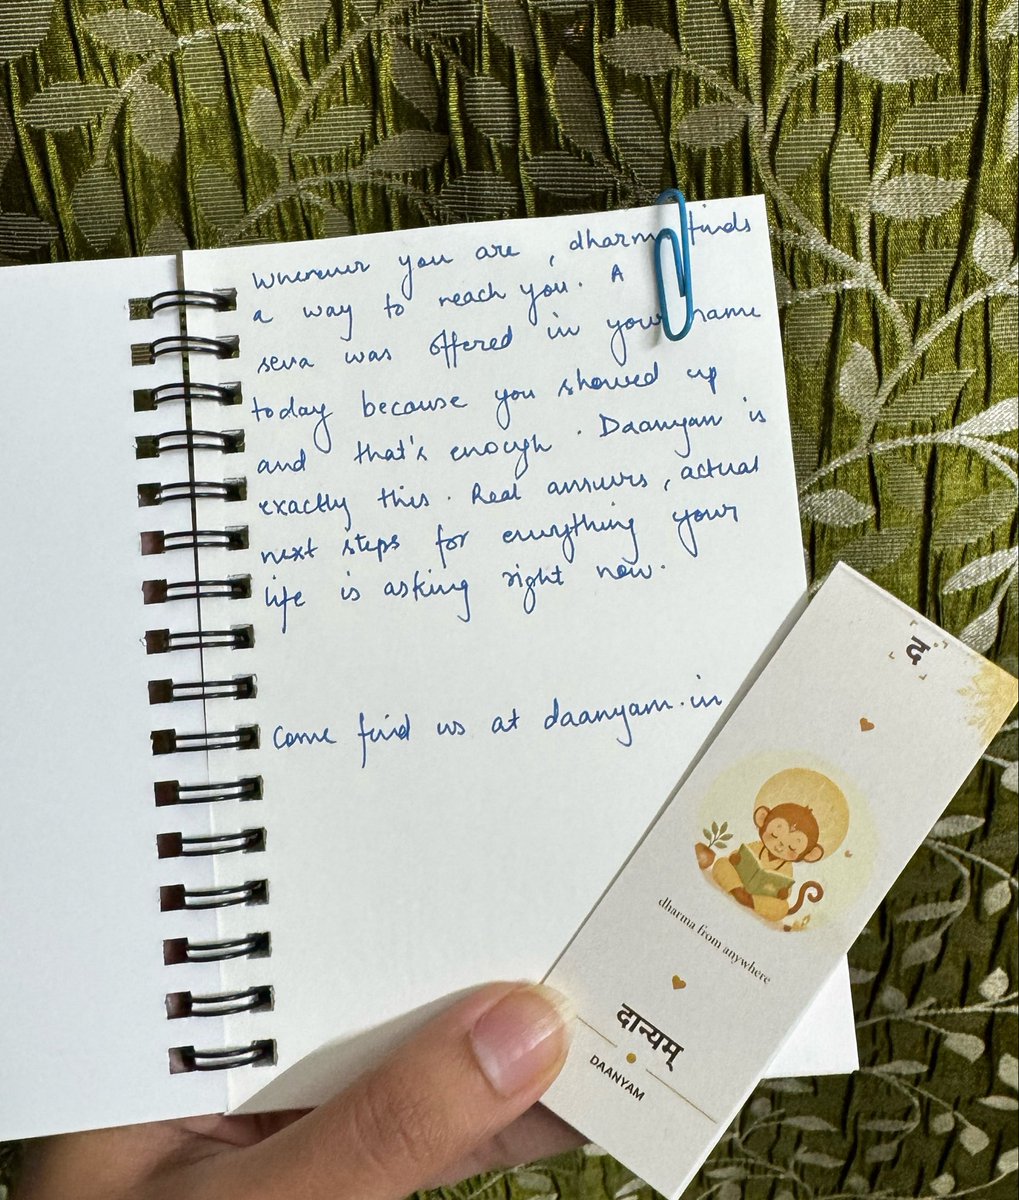 Wherever you are, dharma finds
a way to reach you. A
seva was offered in your name
today because you showed up
and that's enough. Daanyam is
exactly this. Real answers, actual
next steps for everything your
life is asking right now.
Come find us at daanyam.in
द
dharma from anywhere
दान्यम्
DAANYAM